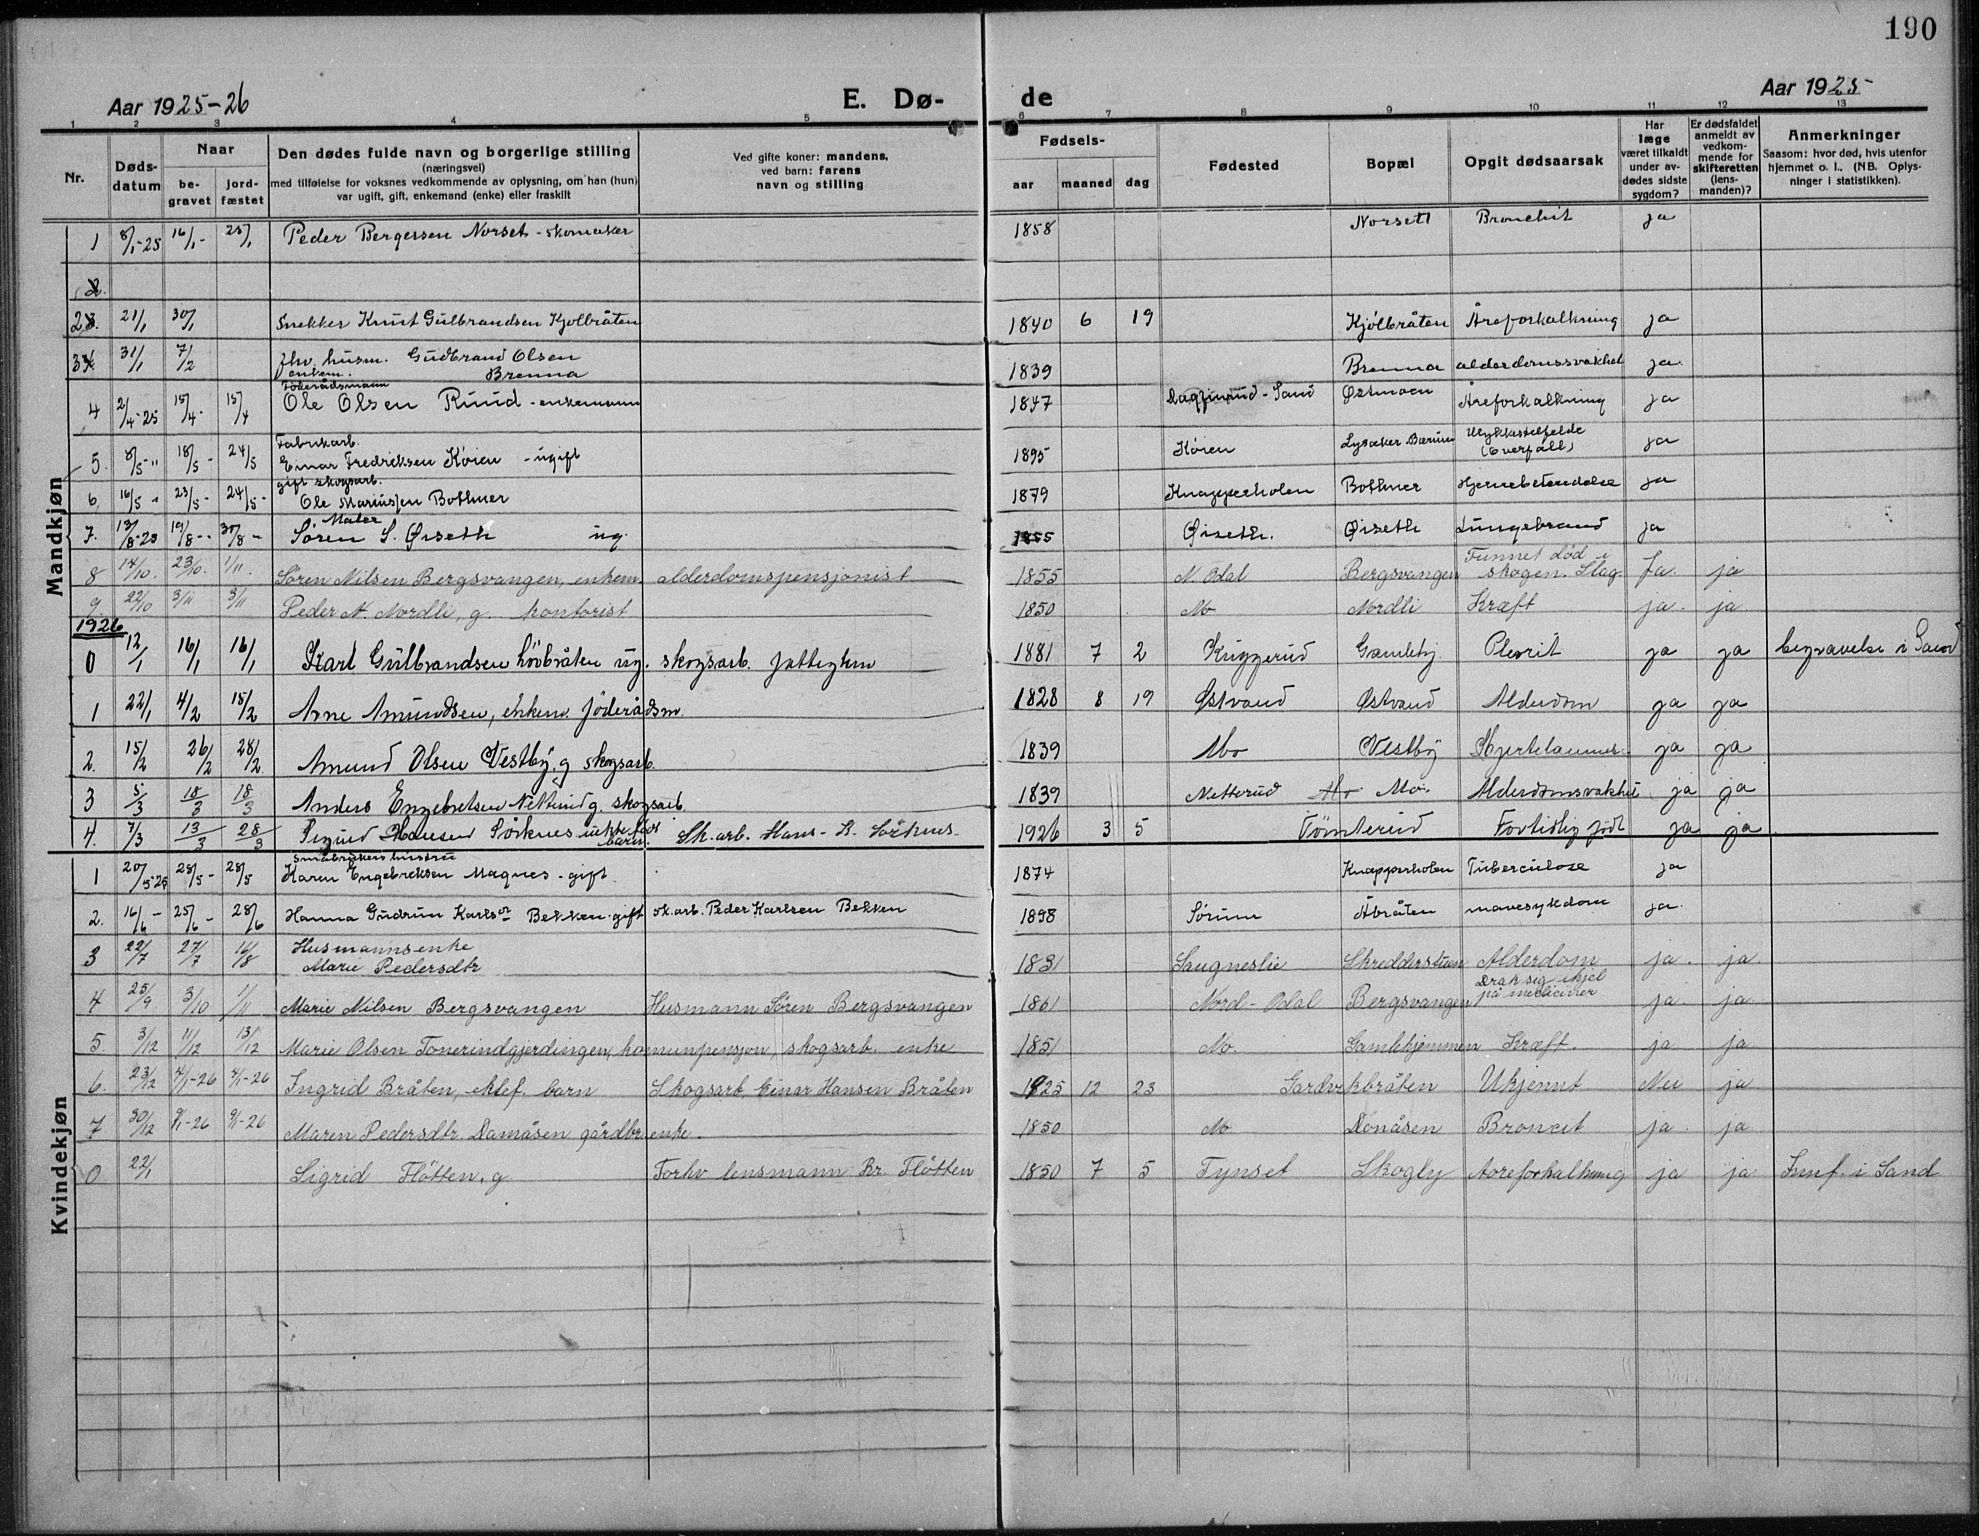 190
Aar 1925-26 E. Dø- de Aar 1925
1 2 3 4 5 6 7 8 9 10 11 12 13
Nr. Døds-datum Naar be-gravet jord-fæstet Den dødes fulde navn og borgerlige stilling (næringsvei) med tilføielse for voksnes vedkommende av oplysning, om han (hun) var ugift, gift, enkemand (enke) eller fraskilt Ved gifte koner: mandens, ved barn: farens navn og stilling Fødsels- aar maaned dag Fødested Bopæl Opgit dødsaarsak Har læge været tilkaldt under av-dødes sidste sygdom? Er dødsfaldet anmeldt av vedkom-mende for skifteretten (lens-manden)? Anmerkninger Saasom: hvor død, hvis utenfor hjemmet o. l., (NB. Oplys-ninger i statistikken).
Mandkjøn
1 8/1-25 16/1- 25/1 Peder Bergersen Norset - skomaker 1858 Norsett Bronchit ja
2.
23. 21/1 30/1 Snekker Knut Gulbrandsen Kjølbråten 1840 6 19 Kjølbråten Åreforkalkning ja
34. 31/1 7/2 fhv. husm. Gudbrand Olsen
enkem. Brenna 1839 Brenna alderdomssvakhet ja.
4 2/4-25 15/4- 15/4 Ole Olsen Ruud - enkemann 1847 Dagfinrud - Sand Østmoen Åreforkalkning ja
Fabrikarb.
5. 8/5-" 18/5- 24/5 Einar Fredriksen Køien - ugift 1895 Køien Lysaker Bærum Ulykkestilfelde (Overfall) ja
gift skogsarb.
6. 16/5 " 23/5- 24/5- Ole Mariussen Bottmer 1879 Knapperholen Bottmer Hjernebetendelse ja
Maler
7. 13/8-25 19/8-- 30/8- Søren S. Øiseth ug. 1855 Øiseth. Øiseth Lungebrand ja
8 14/10. 23/10. 1/11. Søren Nilsen Bergsvangen, enkem alderdomspensjonist 1855 N. Odal Bergsvangen Funnet død i skogen. Slag. Ja. ja
9. 22/10 3/11 3/11 Peder M. Nordli, g. kontorist 1850 Mo Nordli Kræft ja. ja.
1926
0 12/1 16/1 16/1 Karl Gulbrandsen Løvbråten ug. skogsarb. fattiglem 1881 7 2 Kuggerud Gamlehj. Plevrit ja ja begravelse i Sand
1 22/1 4/2 15/2 Arne Amundsen, enkem. føderådsm. 1828 8 19 Østvand Østvand Alderdom ja ja
2. 15/2 26/2 28/2 Amund Olsen Vestby, g skogsarb. 1839 Mo Vestby Hjertelammel. ja ja
3 5/3 18/3 18/3 Anders Engebretsen Netterud g. skogsarb. 1839 Netterud Mo. Alderdomsvakhet ja ja
4. 7/3 13/3 28/3 Sigurd Hansen Sörknes uekte født barn. Sk.arb. Hans K. Sörknes 1926 3 5 Tömterud Fortidlig født ja ja
Kvindekjøn
småbrukers hustru
1 20/5-25 28/5- 28/5 Karen Engebreksen Magnes - gift. 1874 Knapperholen Tuberculose ja
2. 16/6- 25/6- 28/6 Hanna Gudrun Karlsen Bekken - gift sk.arb. Peder Karlsen Bekken 1898 Sørum Åbråten mavesykdom ja.
3 22/7 27/7 16/8 Husmannsenke
Marie Pedersdtr 1831 Saugneslie Skredderstuen Alderdom ja. ja
4 25/9. 3/10 1/11 Marie Nilsen Bergsvangen Husmann Søren Bergsvangen 1861 Nord-Odal Bergsvangen Drak sig ihjel på medicin ja. ja
5. 3/12 11/12 13/12 Marie Olsen Tonerindgjerdingen, komunpensjon, skogsarb. enke 1851 Mo. Gamlehjemmen Kræft. ja ja
6. 23/12 4/1-26 4/1-26 Ingrid Bråten, ektef. barn Skogsarb. Einar Hansen Bråten 1925 12 23 Garderkbråten Ukjennt Nei ja
7 30/12 9/1-26 9/1-26 Maren Pedersdtr Damåsen gårdbr.enke. 1850 Mo Donåsen Broncit ja. ja
0 22/1 Sigrid Fløtten, g Forhv lensmann Br. Fløtten 1850 7 5 Tynset Skogly Aareforkalkning ja ja Innf. i Sand